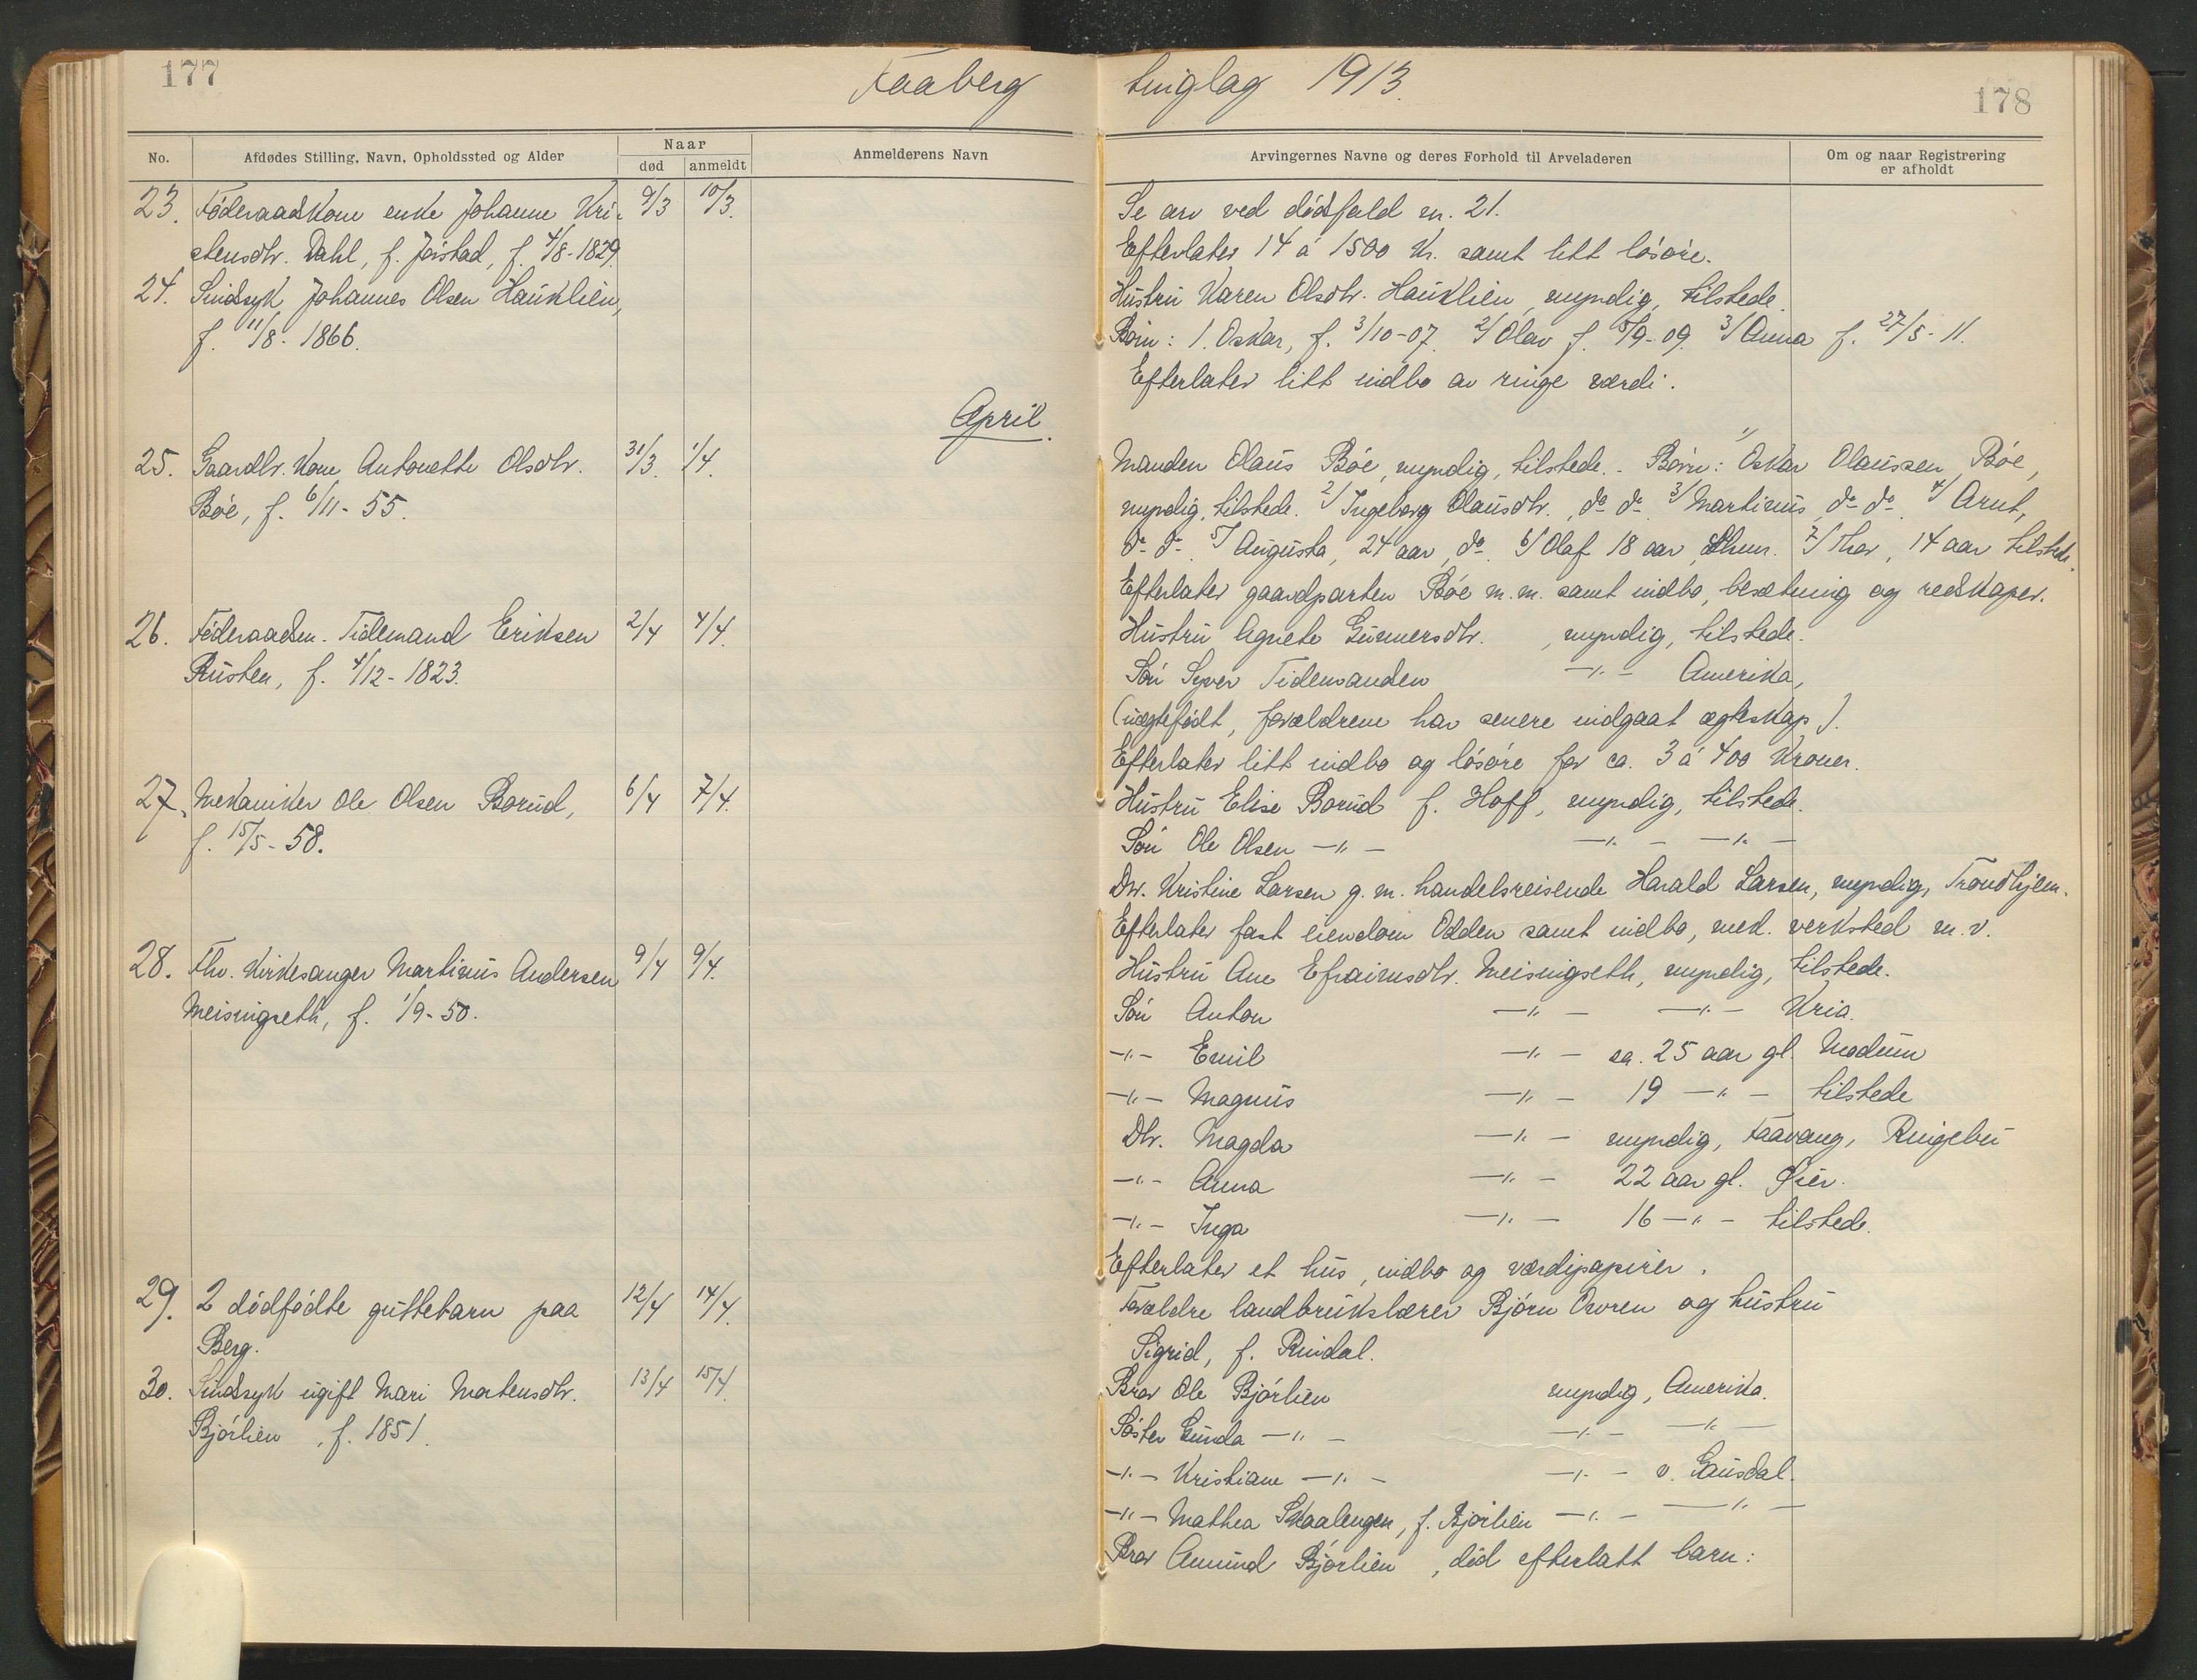 177
Faaberg tinglag 1913.
178
No.
Afdødes Stilling, Navn, Opholdssted og Alder
Naar
død
anmeldt
Anmelderens Navn
Arvingernes Navne og deres Forhold til Arveladeren
Om og naar Registrering
er afholdt
23. Föderaadskone enke Johanne Kri- 9/3 10/3.
stensdtr. Dahl, f. Jörstad, f. 4/8-1829.
24. Sindsyk Johannes Olsen Hauklien,
f. 11/8-1866.
April.
25. Gaardbr. kone Antonette Olsdtr. 31/3. 1/4.
Böe, f. 6/11-55.
26. Föderaadsm. Tidemand Eriksen 2/4 4/4.
Rusten, f. 4/12-1823.
27. Mekaniker Ole Olsen Borud, 6/4 7/4.
f. 15/5-58.
28. Fhv. Kirkesanger Martinus Andersen 9/4 9/4.
Meisingseth, f. 1/9-50.
29. 2 dödfödte guttebarn paa 12/4 14/4.
Berg.
30. Sindsyk ugift Mari Mortensdtr. 13/4 15/4.
Björlien, f. 1851.
Se arv ved dödsfald nr. 21.
Efterlater 14 á 1500 Kr. samt litt lösöre.
Hustru Karen Olsdtr. Hauklien, myndig, tilstede.
Börn: 1. Oskar, f. 3/10-07. 2/ Olav f. 5/9-09. 3/ Anna f. 27/5-11.
Efterlater litt indbo av ringe værdi.
Manden Olaus Böe, myndig, tilstede. - Börn: 1/ Oskar Olaussen Böe,
myndig, tilstede. 2/ Ingeborg Olausdtr., do do. 3/ Martinus, do do. 4/ Arnt,
do do. 5/ Augusta, 24 aar, do. 6/ Olaf 18 aar, Lhmr. 7/ Thor, 14 aar tilstede.
Efterlater gaardparten Böe m.m. samt indbo, besætning og redskaper.
Hustru Agnete Gunnersdtr. , myndig, tilstede.
Sön Syver Tidemanden -"- Amerika,
(uægtefödt, forældrene har senere indgaat ægteskap).
Efterlater litt indbo og lösöre for ca. 3 á 400 Kroner.
Hustru Elise Borud f. Hoff, myndig, tilstede.
Sön Ole Olsen -"- -"- -"-
Dtr. Kristine Larsen g. m. handelsreisende Harald Larsen, myndig, Trondhjem.
Efterlater fast eiendom Odden samt indbo, mek. verksted m.v.
Hustru Ane Efraimsdtr. Meisingseth, myndig, tilstede.
Sön Anton -"- -"- Kria.
-"- Emil -"- ca. 25 aar gl. Modum
-"- Magnus -"- 19 -"- tilstede
Dtr. Magda -"- myndig, Faavang, Ringebu
-"- Anna -"- 22 aar gl. Øier.
-"- Inga -"- 16 -"- tilstede.
Efterlater et hus, indbo og værdipapirer.
Forældre landbrukslærer Björn Ovren og hustru
Sigrid, f. Rindal.
Bror Ole Björlien myndig, Amerika.
Söster Gunda -"- -"- -"-
-"- Kristiane -"- -"- v. Gausdal.
-"- Mathea Skaalengen, f. Björlien -"- -"-
Bror Amund Björlien, död efterlatt barn: